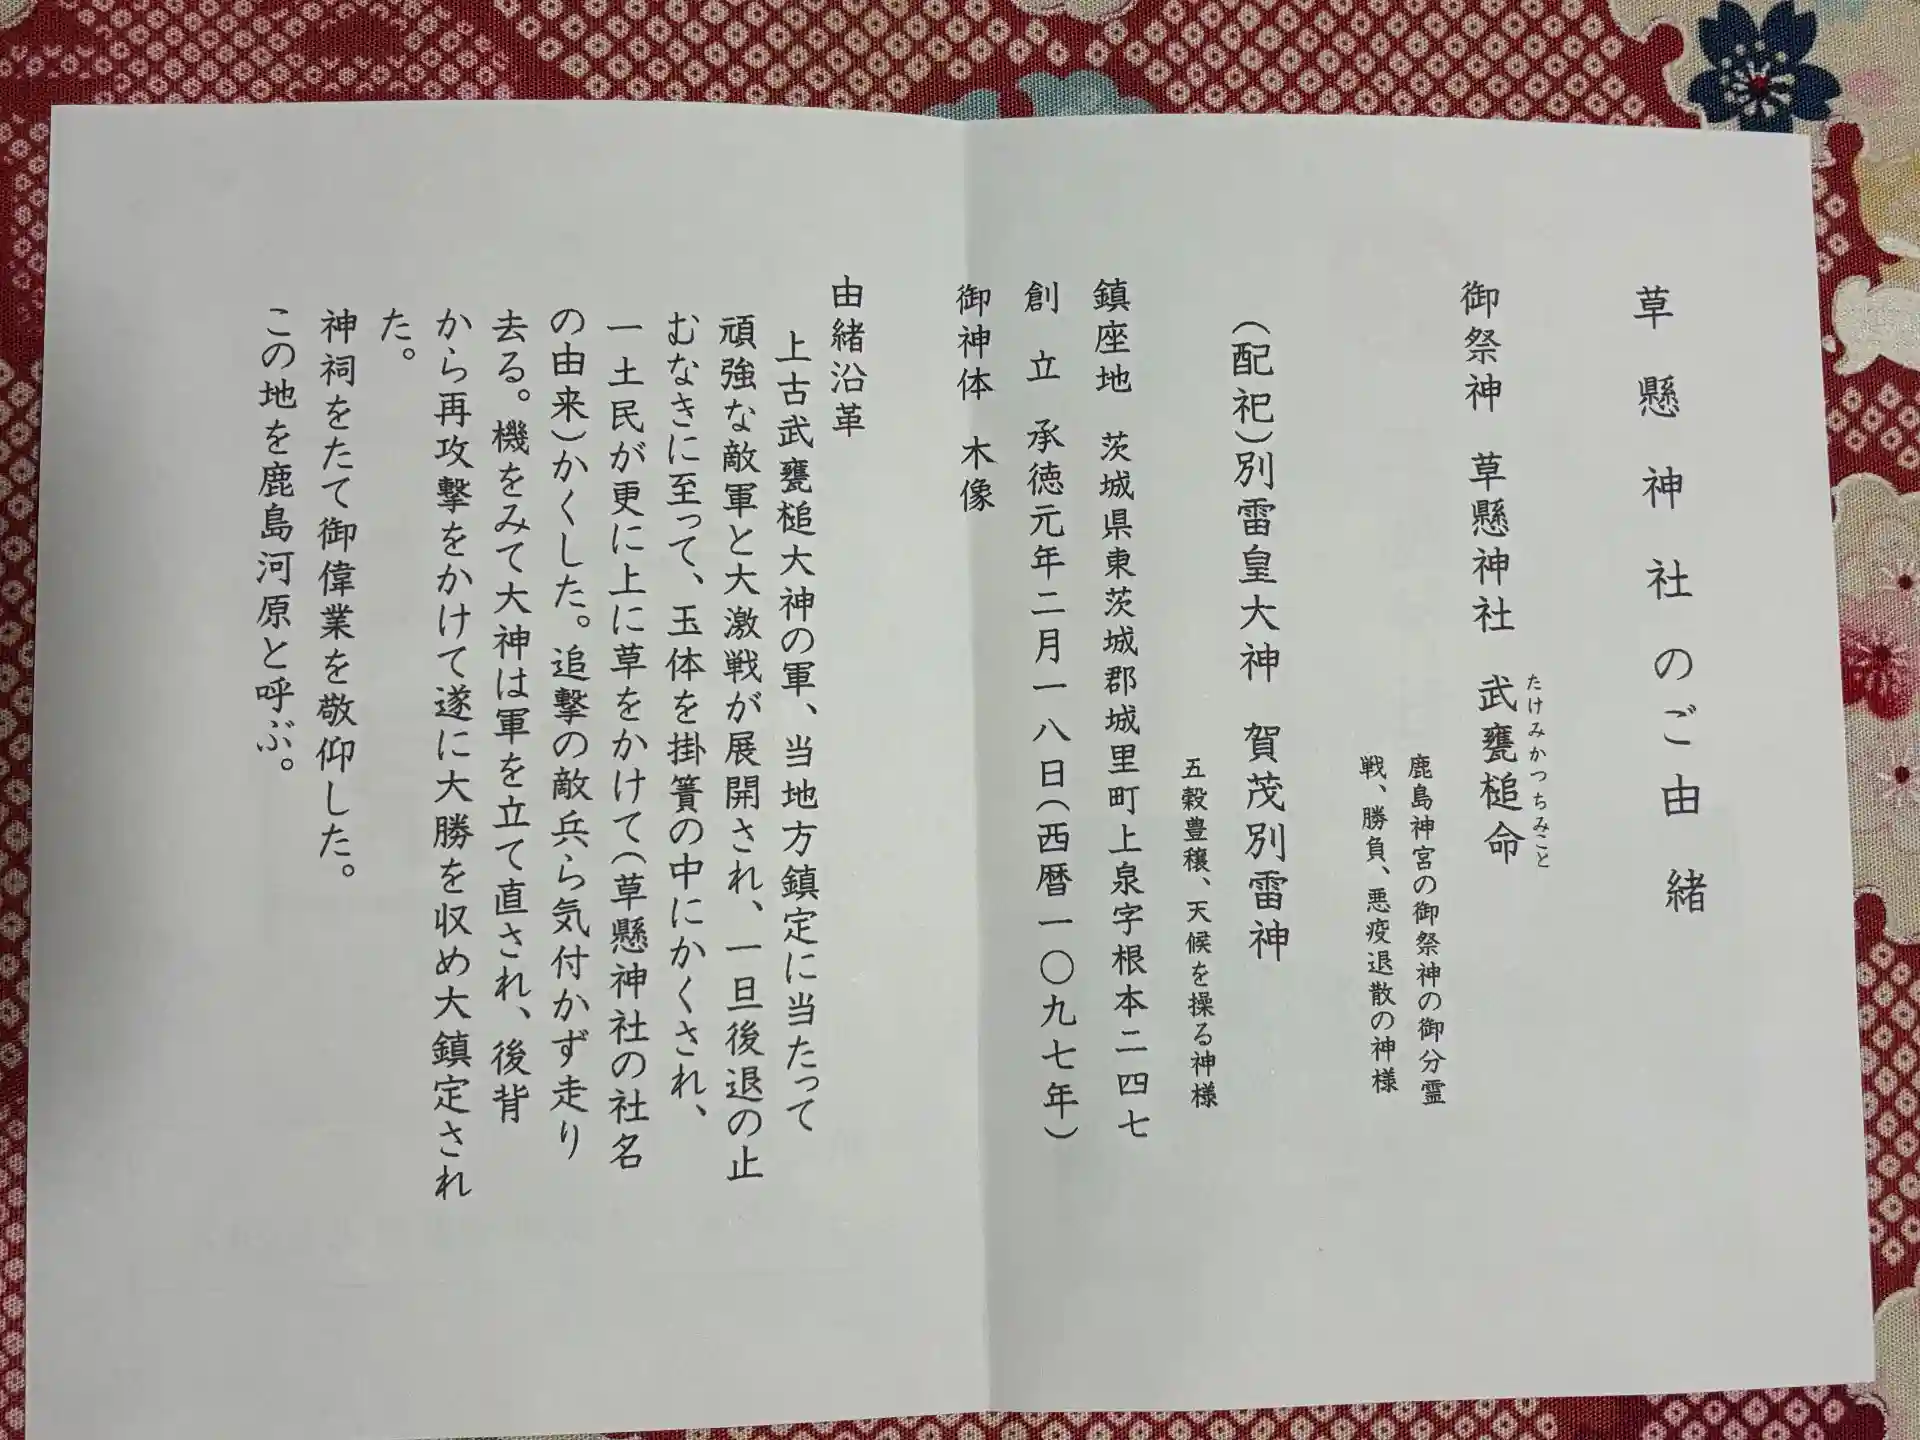 草懸神社のご由緒
御祭神 草懸神社 武甕槌命
たけみかつちみこと
鹿島神宮の御祭神の御分霊
戦、勝負、悪疫退散の神様
（配祀）別雷皇大神 賀茂別雷神
五穀豊穣、天候を操る神様
鎮座地 茨城県東茨城郡城里町上泉字根本二四七
創立 承徳元年二月一八日（西暦一〇九七年）
御神体 木像
由緒沿革
上古武甕槌大神の軍、当地方鎮定に当たって
頑強な敵軍と大激戦が展開され、一旦後退の止
むなきに至って、玉体を掛簀の中にかくされ、
一土民が更に上に草をかけて（草懸神社の社名
の由来）かくした。追撃の敵兵ら気付かず走り
去る。機をみて大神は軍を立て直され、後背
から再攻撃をかけて遂に大勝を収め大鎮定され
た。
神祠をたて御偉業を敬仰した。
この地を鹿島河原と呼ぶ。